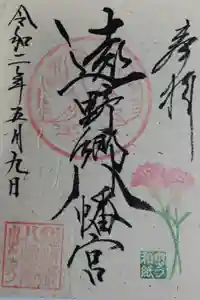 奉拝
遠野郷八幡宮
令和二年五月九日